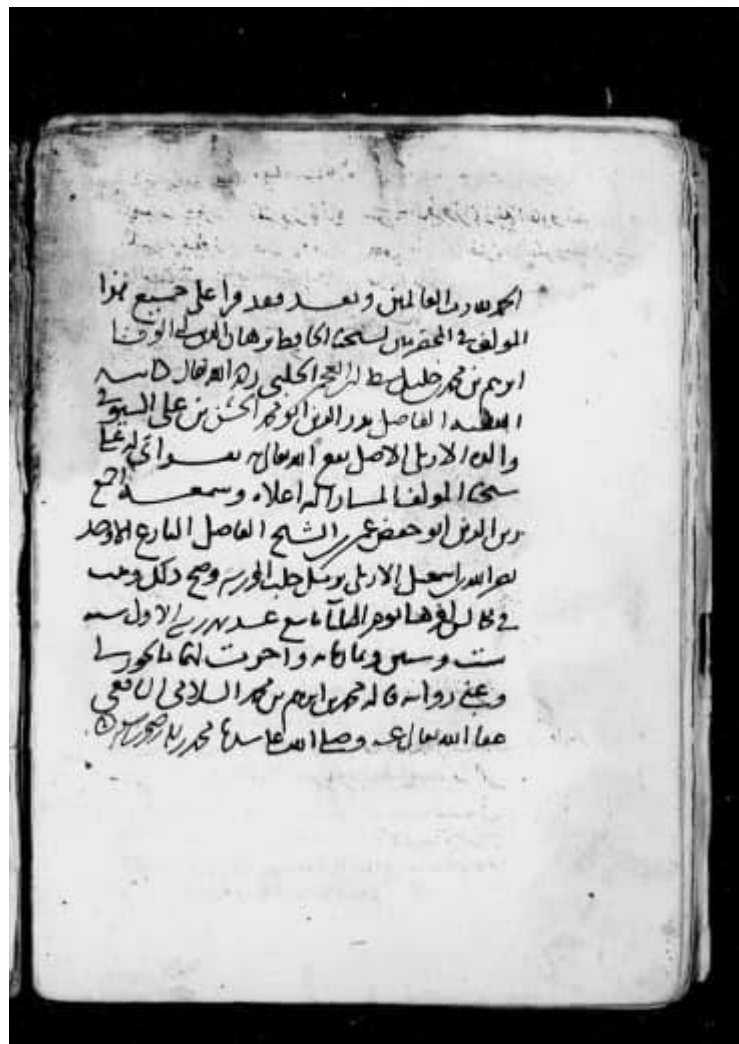 الحمد لله رب العالمين وبعد فقد قرا على جميع هذا
المولف في المخضرمين لشيخنا الحافظ برهان الدين ابي الوفا
ابرهيم بن محمد بن خليل سبط ابن العجمي الحلبي رحمه الله تعالى
الفاضل بدر الدين ابو محمد الحسن بن علي السيوفي
والده الاربلي الاصل نفع الله تعالى به بقراتي له على
شيخنا المولف المشار اليه اعلاه وسمعه اجمع
زين الدين ابو حفص عمر بن الشيخ الفاضل البارع الاوحد
نصر الله بن اسمعيل الاربلي نزيل حلب المحروسة وصح ذلك وثبت
في يوم الثلاثا تاسع عشر ربيع الاول سنة
ست وستين وثمانمائة واجزت لهما ما يجوز لي
وعني روايته قاله محمد بن ابرهيم بن محمد السلامي الشافعي
عفا الله تعالى عنه وصلى الله على سيدنا محمد وآله وصحبه وسلم